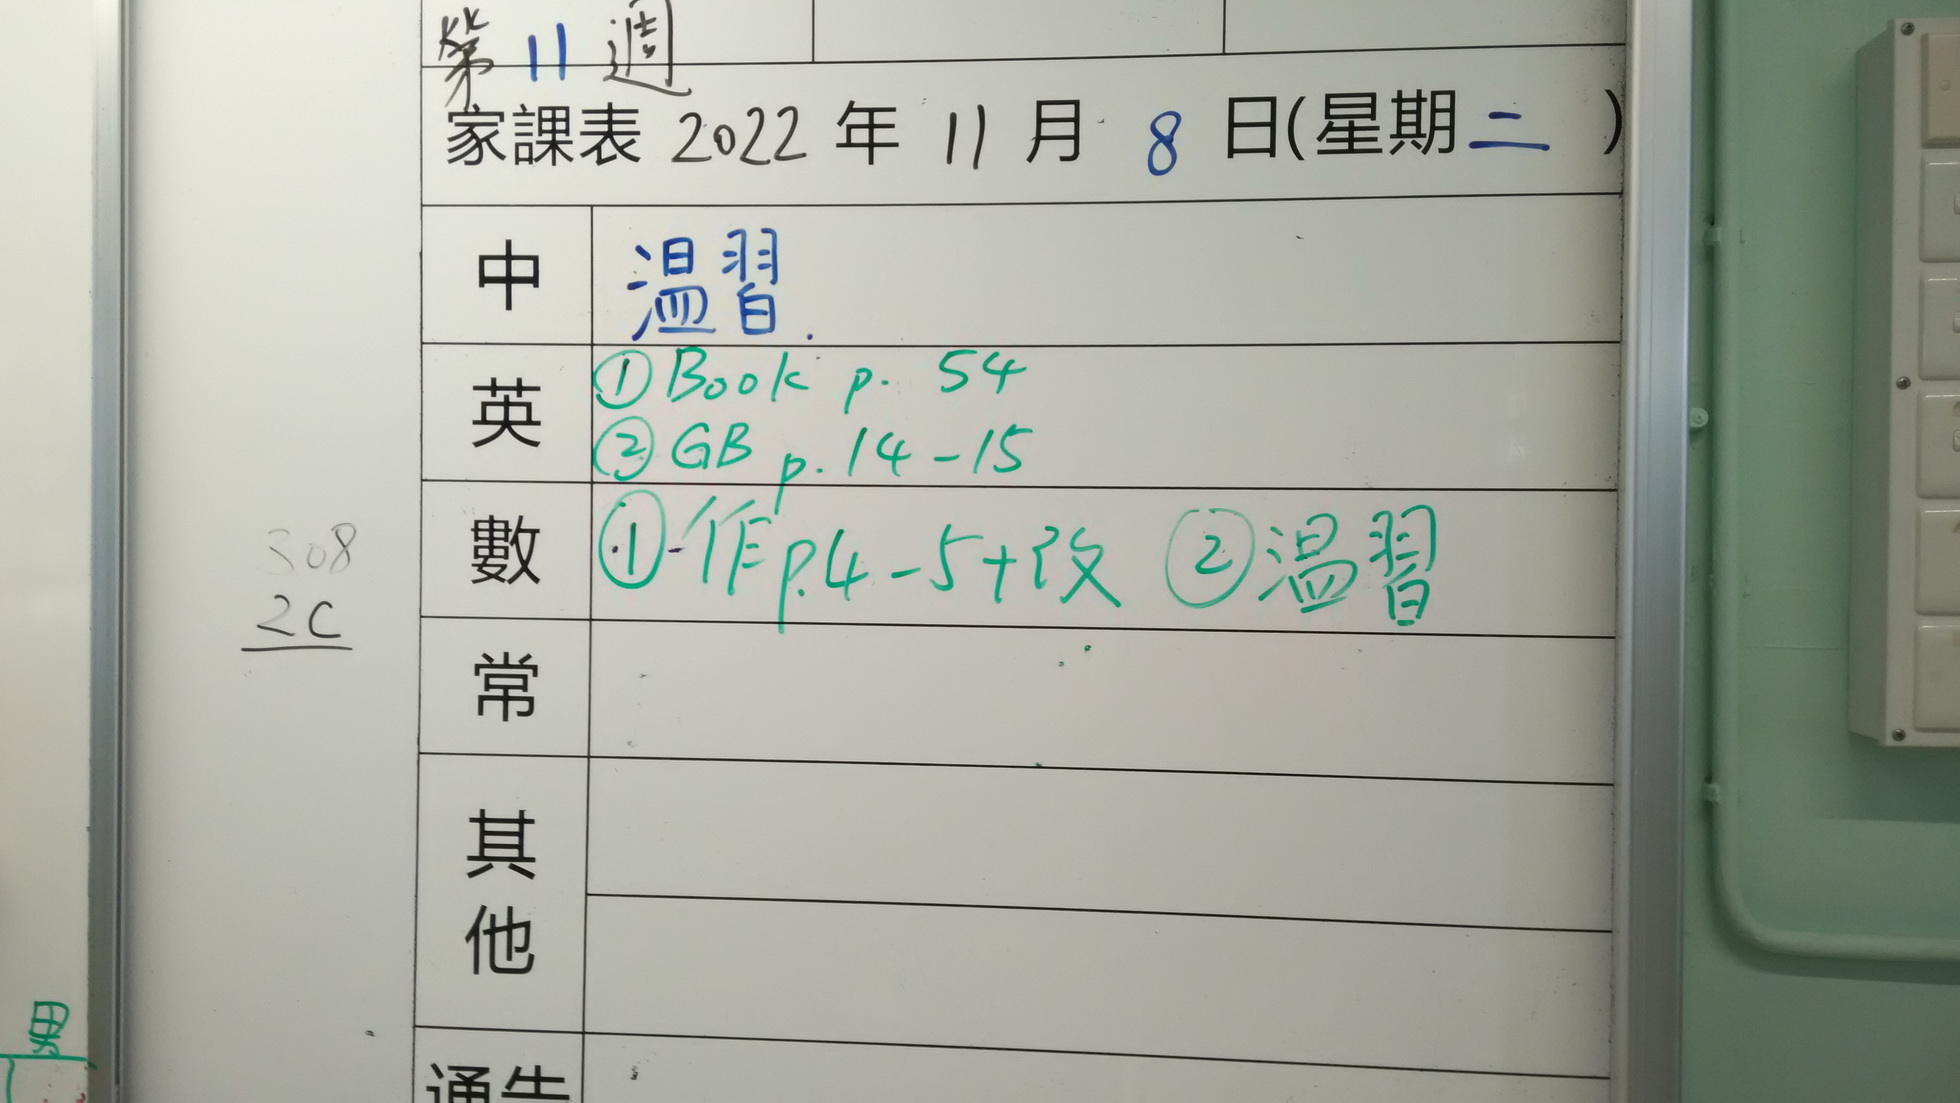 第11週
家課表 2022 年 11 月 8 日(星期二 )
中 温習.
英 ① Book p. 54
② GB p. 14-15
數 ① 作p.4-5+改 ② 温習
308
2C
常
其他
通告
男